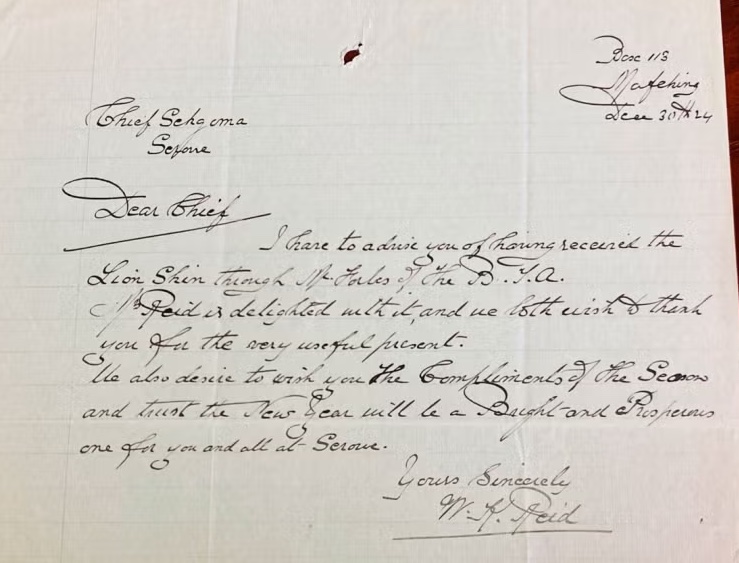 Box 118
Mafeking
Dec 30th 24
Chief Sekgoma
Serowe
Dear Chief
I have to advise you of having received the
Lion Skin through Mr Forbes of the B.T.A.
Mrs Reid is delighted with it, and we both wish to thank
you for the very useful present.
We also desire to wish you the Compliments of the Season
and trust the New Year will be a Bright and Prosperous
one for you and all at Serowe.
Yours Sincerely
W. H. Reid